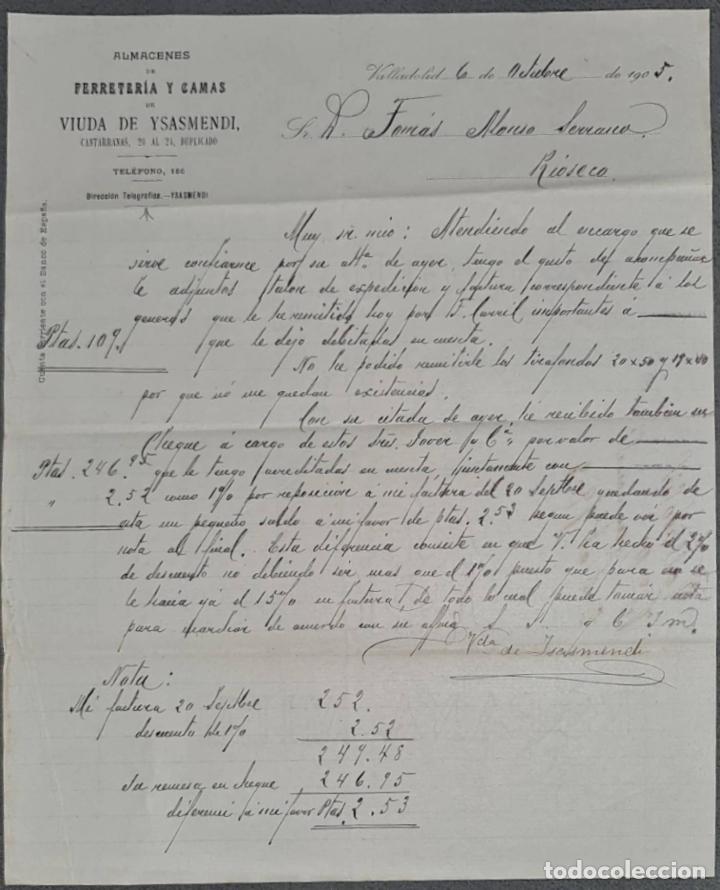 ALMACENES
DE
FERRETERÍA Y CAMAS
DE
VIUDA DE YSASMENDI,
CANTARRANAS, 20 AL 24, DUPLICADO
TELÉFONO, 186
Dirección Telegráfica.—YSASMENDI
Cuenta corriente con el Banco de España.
Valladolid 6 de Octubre de 1905.
Sr. D. Tomás Alonso Serrano.
Rioseco.
Muy sr. mio: Atendiendo al encargo que se
sirve confiarme por su atta. de ayer, tengo el gusto de acompañar
le adjuntos talon de expedición y factura correspondiente á los
generos que le he remitido hoy por F. Carril importantes á
Ptas. 109. que le dejo debitadas en cuenta.
No he podido remitirle los tirafondos 20x50 y 19x40
por que no me quedan existencias.
Con su citada de ayer, he recibido tambien un
Cheque á cargo de estos Sres. Jover y Cia. por valor de
Ptas. 246.95 que le tengo acreditadas en cuenta, juntamente con
" 2.52 como 1% por reposición á mi factura del 20 Septbre quedando de
esta un pequeño saldo á mi favor de ptas. 2.53 segun puede ver por
nota al final. Esta diferencia consiste en que V. ha hecho el 2%
de descuento no debiendo ser mas que el 1% puesto que para se
le hacia yá el 15% en factura. De todo lo cual puede tomar nota
para marchar de acuerdo con su affma S. S. q B S m.
Vda de Isasmendi
Nota:
Mi factura 20 Septbre 252.
descuento del 1% 2.52
249.48
Su remesa en cheque 246.95
diferencia á mi favor Ptas. 2.53
todocoleccion